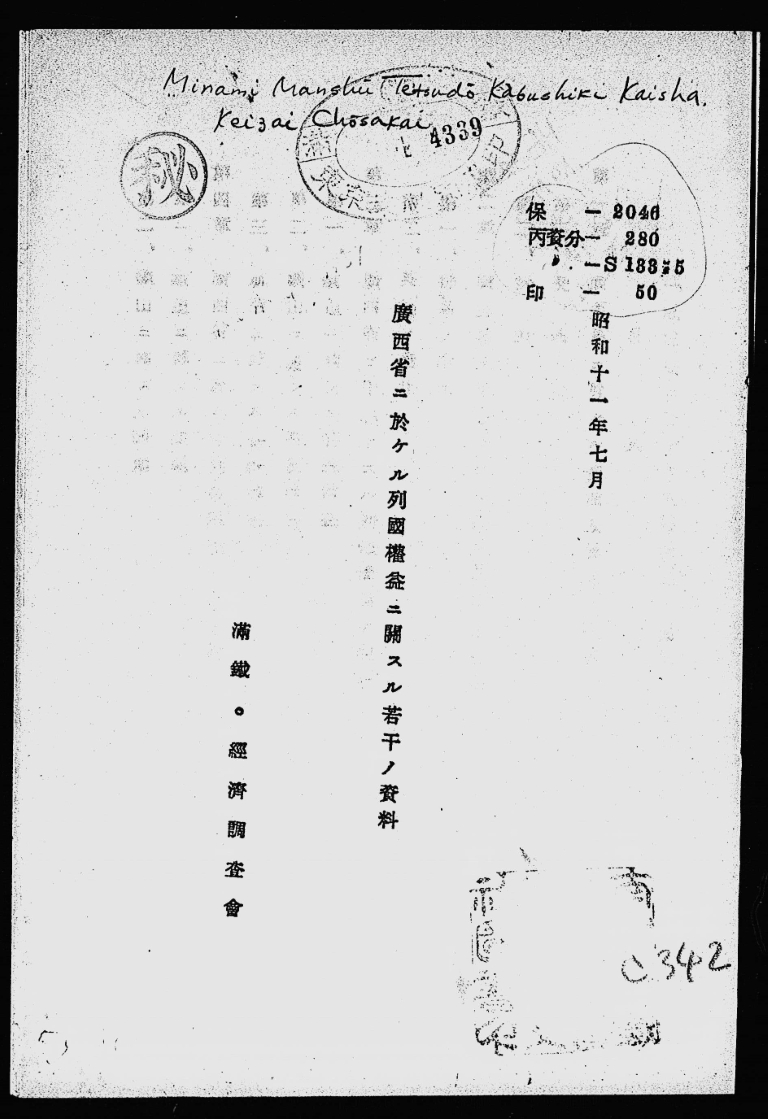 Minami Manshū Tetsudō Kabushiki Kaisha.
Keizai Chōsakai
4339
東京
印
秘
保 — 2046
丙資分 — 280
〃 . — S 133;5
印 — 50
昭和十一年七月
廣西省ニ於ケル列國權益ニ關スル若干ノ資料
滿鐵。經濟調査會
C342